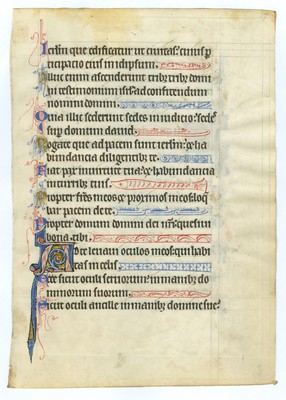 Ierl'm que edificatur ut ciuitas: cuius p
ticipatio eius in idipsum.
Illuc enim ascenderunt tribus tribus domi
ni testimonium isrl' ad confitendum
nomini domini.
Quia illic sederunt sedes in iudicio: sedes
sup domum dauid.
Rogate que ad pacem sunt ierl'm: et ha
bundancia diligentibus te.
Fiat pax in uirtute tua: et habundancia
in turribus tuis.
Propter fr̄es meos et proximos meos: loq
bar pacem de te.
Propter domum domini dei nr̄i: quesiui
bona tibi.
Ad te leuaui oculos meos: qui habi
tas in celis.
Ecce sicut oculi seruorum: in manibus do
minorum suorum.
Sicut oculi ancille in manibus domine sue: